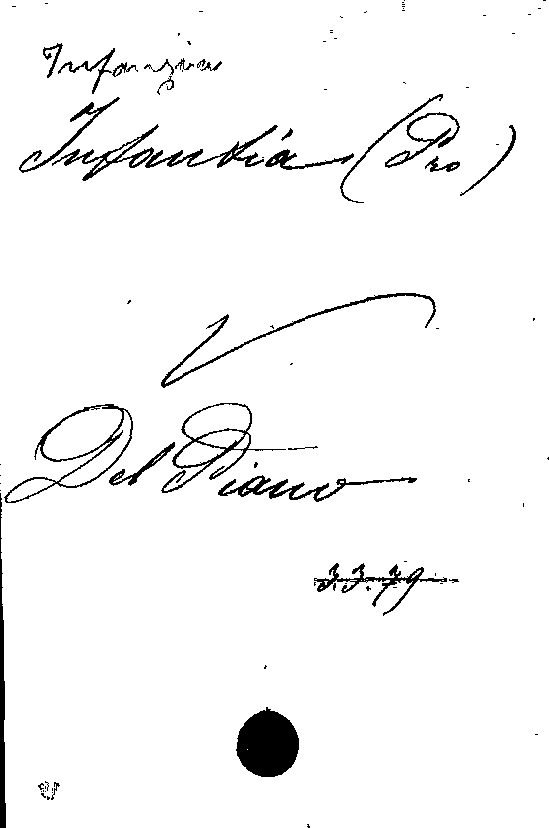 Infanzia
Infantia (Pro)
V
Del Piano
3.3.79